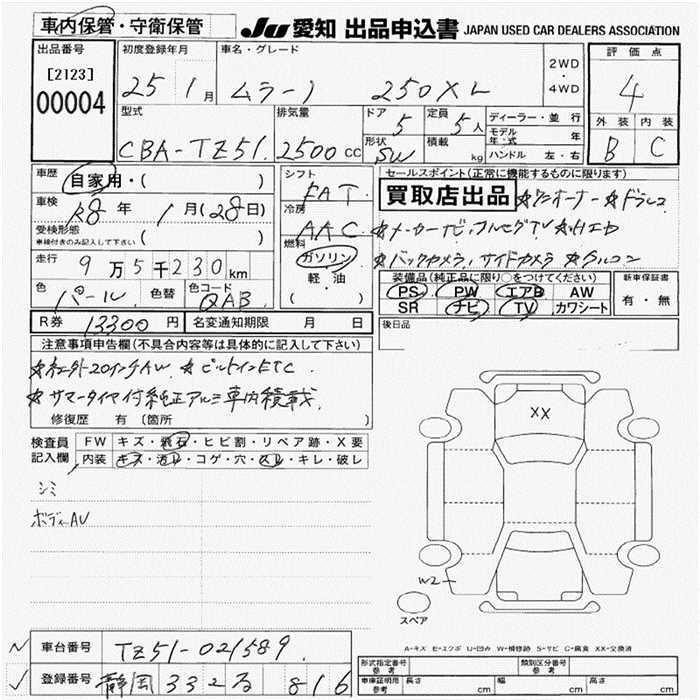 車内保管・守衛保管
JU 愛知 出品申込書 JAPAN USED CAR DEALERS ASSOCIATION
出品番号
[2123]
00004
初度登録年月
25 1月
車名・グレード
ムラーノ 250XL
2WD
・
4WD
評価点
4
外装 内装
B C
型式
CBA-TZ51
排気量
2500cc
ドア
5
定員
5人
形状
SW
積載
kg
ディーラー・並行
モデル年式 年
ハンドル 左・右
車歴
自家用・( )
車検
R8年 1月(28日)
受検形態
車検付きのみ記入して下さい ( )
走行
9万5千230km
色
パール
色替
色コード
QAB
シフト
FAT
冷房
AAC
燃料
ガソリン
軽・油
( )
セールスポイント(正常に機能するものに限ります)
買取店出品 ☆ワンオーナー ☆ドラレコ
☆メーカーナビ,フルセグTV ☆HIエヤ
☆バックカメラ,サイドカメラ ☆クルコン
装備品(純正品に限り○をつけてください)
PS PW エアB AW
SR ナビ TV カワシート
新車保証書
有・無
後日品
R券 13300円 名変通知期限 月 日
注意事項申告欄(不具合内容等は具体的に記入して下さい)
☆社外20インチAW ☆ビルトインETC
☆サマータイヤ付純正アルミ車内積載
修復歴 有〔箇所 〕
検査員記入欄
FW キズ・飛石・ヒビ割・リペア跡・X要
内装 キズ・汚れ・コゲ・穴・スレ・キレ・破レ
シミ
ボディAU
XX
W2
スペア
A-キズ E-エクボ U-凹み W-補修跡 S-サビ C-腐食 XX-交換済
車台番号 TZ51-021589
登録番号 静岡 332 る 816
形式指定番号 参考
類別区分番号 参考
車庫証明用 参考 長さ cm 幅 cm 高さ cm